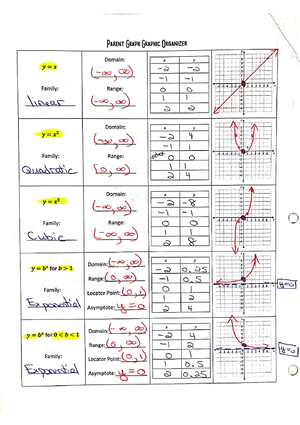 PARENT GRAPH GRAPHIC ORGANIZER
y = x
Family:
linear
Domain:
(-∞, ∞)
Range:
(-∞, ∞)
x y
-2 -2
-1 -1
0 0
1 1
2 2
y = x²
Family:
Quadratic
Domain:
(-∞, ∞)
Range:
[0, ∞)
x y
-2 4
-1 1
0 0
1 1
2 4
y = x³
Family:
Cubic
Domain:
(-∞, ∞)
Range:
(-∞, ∞)
x y
-2 -8
-1 -1
0 0
1 1
2 8
y = bˣ for b > 1
Family:
Exponential
Domain: (-∞, ∞)
Range: (0, ∞)
Locator Point: (0,1)
Asymptote: y = 0
x y
-2 0.25
-1 0.5
0 1
1 2
2 4
y=0
y = bˣ for 0 < b < 1
Family:
Exponential
Domain: (-∞, ∞)
Range: (0, ∞)
Locator Point: (0,1)
Asymptote: y = 0
x y
-2 4
-1 2
0 1
1 0.5
2 0.25
y=0